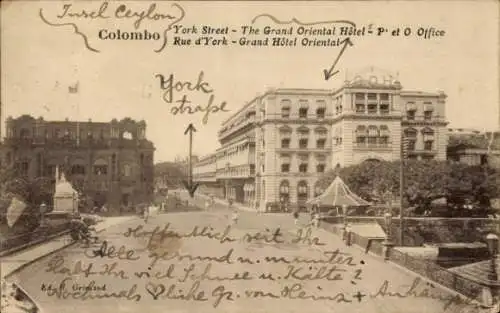 Insel Ceylon
York Street - The Grand Oriental Hôtel - P. et O Office
Colombo
Rue d'York - Grand Hôtel Oriental
GOH
York
straße
Hoffentlich seit Ihr
Alle gesund u. munter.
Habt Ihr viel Schnee u. Kälte?
Nochmals herzliche Gr. von Heinz + Anhang
Ed. Grimaud